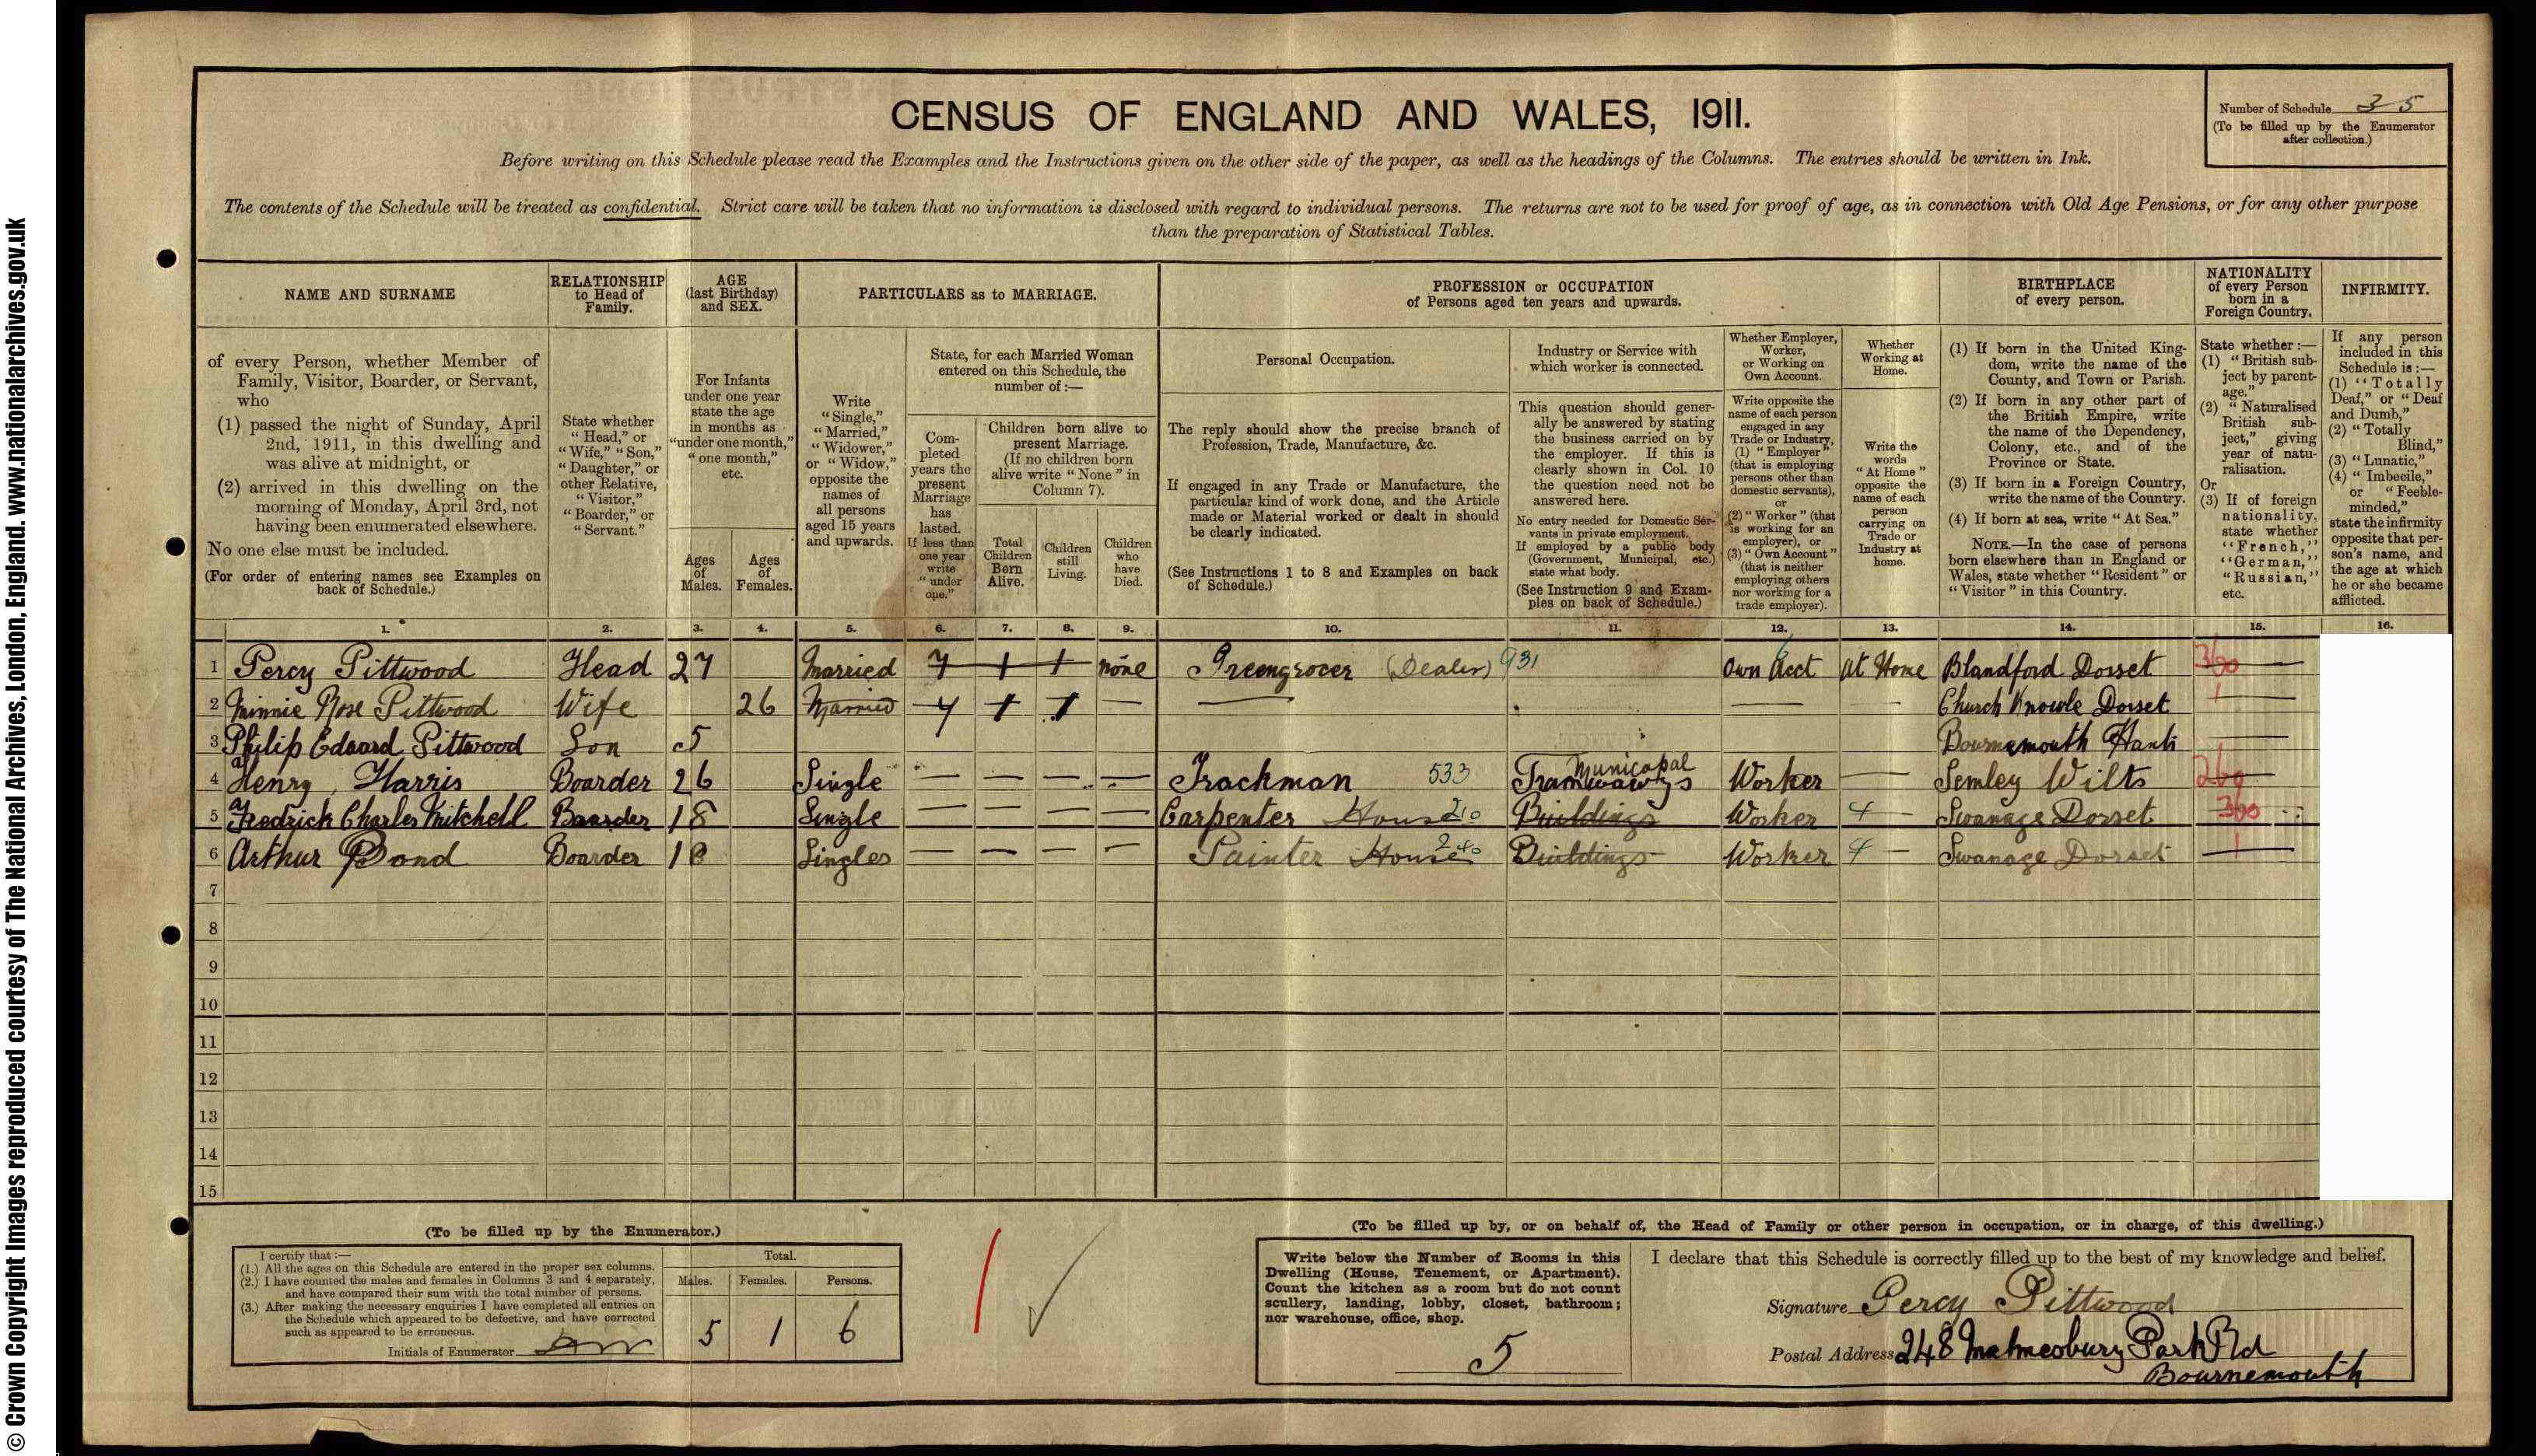 © Crown Copyright Images reproduced courtesy of The National Archives, London, England. www.nationalarchives.gov.uk
CENSUS OF ENGLAND AND WALES, 1911.
Number of Schedule 35
(To be filled up by the Enumerator
after collection.)
Before writing on this Schedule please read the Examples and the Instructions given on the other side of the paper, as well as the headings of the Columns. The entries should be written in Ink.
The contents of the Schedule will be treated as confidential. Strict care will be taken that no information is disclosed with regard to individual persons. The returns are not to be used for proof of age, as in connection with Old Age Pensions, or for any other purpose
than the preparation of Statistical Tables.
NAME AND SURNAME
RELATIONSHIP
to Head of
Family.
AGE
(last Birthday)
and SEX.
PARTICULARS as to MARRIAGE.
PROFESSION or OCCUPATION
of Persons aged ten years and upwards.
BIRTHPLACE
of every person.
NATIONALITY
of every Person
born in a
Foreign Country.
INFIRMITY.
of every Person, whether Member of
Family, Visitor, Boarder, or Servant,
who
(1) passed the night of Sunday, April
2nd, 1911, in this dwelling and
was alive at midnight, or
(2) arrived in this dwelling on the
morning of Monday, April 3rd, not
having been enumerated elsewhere.
No one else must be included.
(For order of entering names see Examples on
back of Schedule.)
State whether
"Head," or
"Wife," "Son,"
"Daughter," or
other Relative,
"Visitor,"
"Boarder," or
"Servant."
For Infants
under one year
state the age
in months as
"under one month,"
"one month,"
etc.
Ages
of
Males.
Ages
of
Females.
Write
"Single,"
"Married,"
"Widower,"
or "Widow,"
opposite the
names of
all persons
aged 15 years
and upwards.
State, for each Married Woman
entered on this Schedule, the
number of :—
Com-
pleted
years the
present
Marriage
has
lasted.
If less than
one year
write
"under
one."
Children born alive to
present Marriage.
(If no children born
alive write "None" in
Column 7).
Total
Children
Born
Alive.
Children
still
Living.
Children
who
have
Died.
Personal Occupation.
The reply should show the precise branch of
Profession, Trade, Manufacture, &c.
If engaged in any Trade or Manufacture, the
particular kind of work done, and the Article
made or Material worked or dealt in should
be clearly indicated.
(See Instructions 1 to 8 and Examples on back
of Schedule.)
Industry or Service with
which worker is connected.
This question should gener-
ally be answered by stating
the business carried on by
the employer. If this is
clearly shown in Col. 10
the question need not be
answered here.
No entry needed for Domestic Ser-
vants in private employment.
If employed by a public body
(Government, Municipal, etc.)
state what body.
(See Instruction 9 and Exam-
ples on back of Schedule.)
Whether Employer,
Worker,
or Working on
Own Account.
Write opposite the
name of each person
engaged in any
Trade or Industry,
(1) "Employer"
(that is employing
persons other than
domestic servants),
or
(2) "Worker" (that
is working for an
employer), or
(3) "Own Account"
(that is neither
employing others
nor working for a
trade employer).
Whether
Working at
Home.
Write the
words
"At Home"
opposite the
name of each
person
carrying on
Trade or
Industry at
home.
(1) If born in the United King-
dom, write the name of the
County, and Town or Parish.
(2) If born in any other part of
the British Empire, write
the name of the Dependency,
Colony, etc., and of the
Province or State.
(3) If born in a Foreign Country,
write the name of the Country.
(4) If born at sea, write "At Sea."
NOTE.—In the case of persons
born elsewhere than in England or
Wales, state whether "Resident" or
"Visitor" in this Country.
State whether :—
(1) "British sub-
ject by parent-
age."
(2) "Naturalised
British sub-
ject," giving
year of natu-
ralisation.
Or
(3) If of foreign
nationality,
state whether
"French,"
"German,"
"Russian,"
etc.
If any person
included in this
Schedule is :—
(1) "Totally
Deaf," or "Deaf
and Dumb,"
(2) "Totally
Blind,"
(3) "Lunatic,"
(4) "Imbecile,"
or "Feeble-
minded,"
state the infirmity
opposite that per-
son's name, and
the age at which
he or she became
afflicted.
1. 2. 3. 4. 5. 6. 7. 8. 9. 10. 11. 12. 13. 14. 15. 16.
1 Percy Pittwood Head 27 Married 7 1 1 none Greengrocer (Dealer) 931 Own Acct At Home Blandford Dorset 360
2 Minnie Rose Pittwood Wife 26 Married 7 1 1 — — — — Church Knowle Dorset 1 —
3 Philip Edward Pittwood Son 5 Bournemouth Hants —
4 Henry Harris Boarder 26 Single — — — — Trackman 533 Municopal Tramways Worker — Semley Wilts 269
5 Fredrick Charles Kitchell Boarder 18 Single — — — — Carpenter House 210 Buildings Worker 4 — Swanage Dorset 360
6 Arthur Bond Boarder 18 Singles — — — — Painter House 240 Buildings Worker 4 — Swanage Dorset 1
7
8
9
10
11
12
13
14
15
(To be filled up by the Enumerator.)
I certify that :—
(1.) All the ages on this Schedule are entered in the proper sex columns.
(2.) I have counted the males and females in Columns 3 and 4 separately,
and have compared their sum with the total number of persons.
(3.) After making the necessary enquiries I have completed all entries on
the Schedule which appeared to be defective, and have corrected
such as appeared to be erroneous.
Initials of Enumerator
Total.
Males. Females. Persons.
5 1 6
(To be filled up by, or on behalf of, the Head of Family or other person in occupation, or in charge, of this dwelling.)
Write below the Number of Rooms in this
Dwelling (House, Tenement, or Apartment).
Count the kitchen as a room but do not count
scullery, landing, lobby, closet, bathroom;
nor warehouse, office, shop.
5
I declare that this Schedule is correctly filled up to the best of my knowledge and belief.
Signature Percy Pittwood
Postal Address 248 Malmesbury Park Rd
Bournemouth